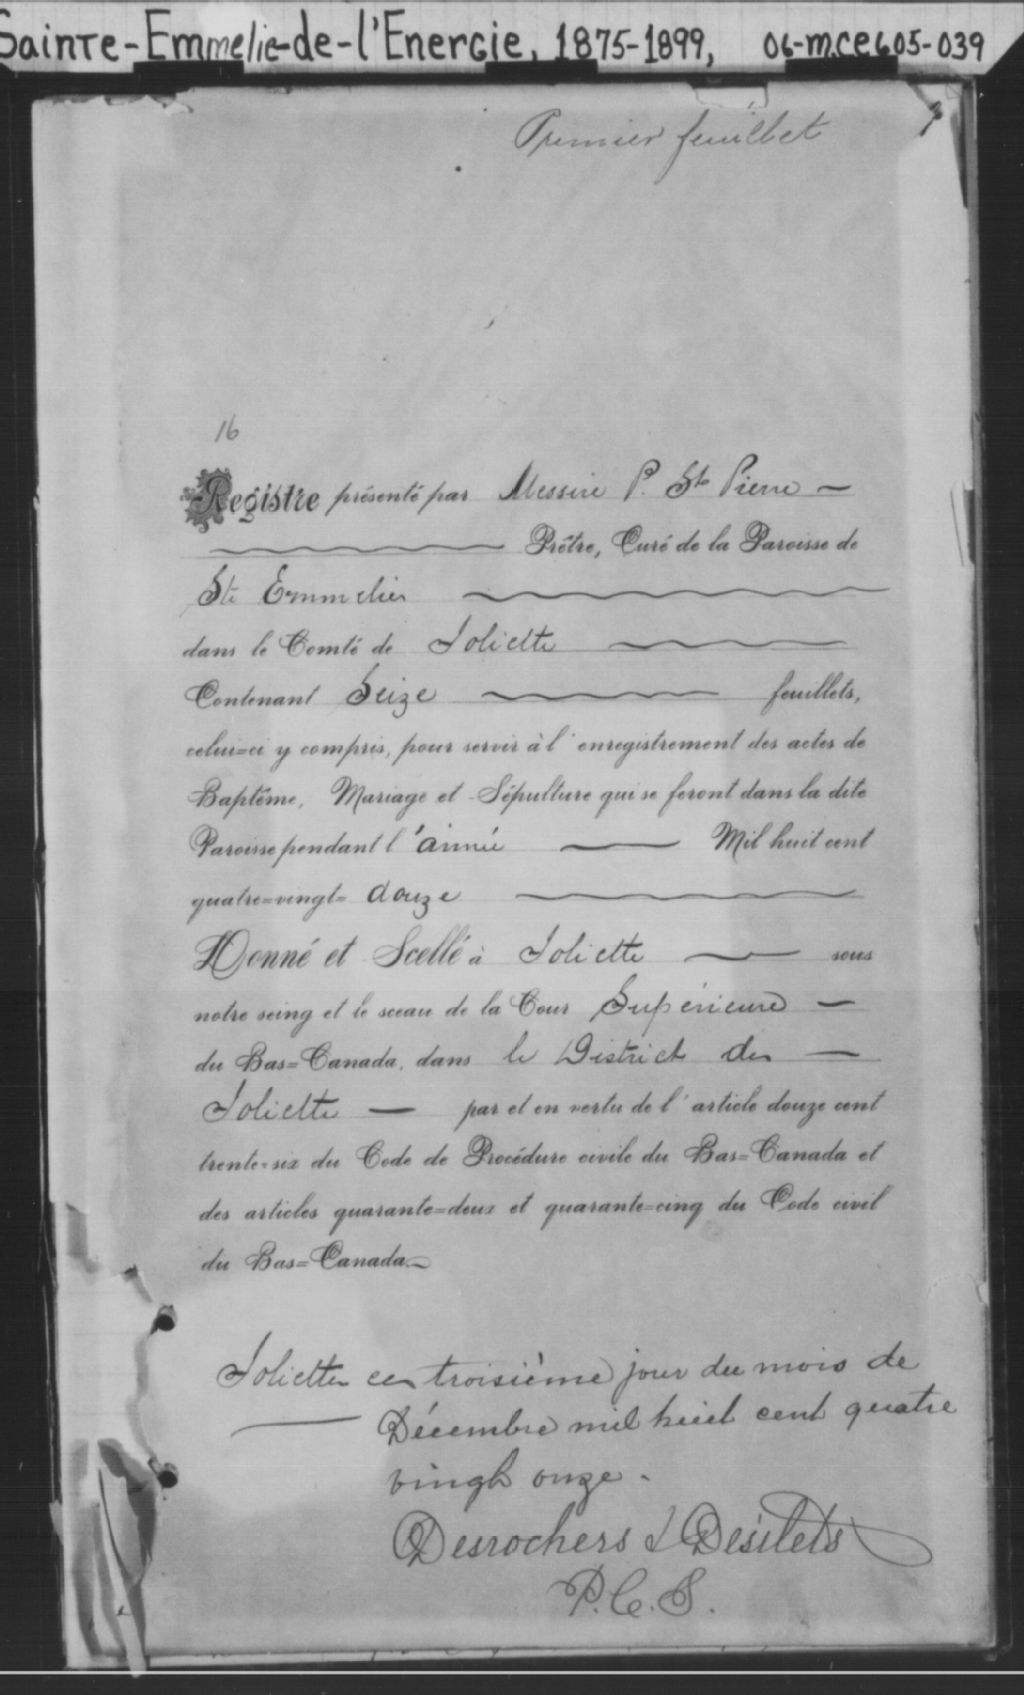 Sainte-Emmelie-de-l'Energie, 1875-1899, 06-M.CE605-039
Premier feuillet
16
Registre présenté par Messire P. St Pierre
Prêtre, Curé de la Paroisse de
Ste Emmelie
dans le Comté de Joliette
Contenant Seize feuillets,
celui=ci y compris, pour servir à l'enregistrement des actes de
Baptême, Mariage et Sépulture qui se feront dans la dite
Paroisse pendant l'année Mil huit cent
quatre=vingt= douze
Donné et Scellé à Joliette sous
notre seing et le sceau de la Cour Supérieure
du Bas=Canada, dans le District de
Joliette par et en vertu de l'article douze cent
trente=six du Code de Procédure civile du Bas=Canada et
des articles quarante=deux et quarante=cinq du Code civil
du Bas=Canada
Joliette ce troisième jour du mois de
Décembre mil huit cent quatre
vingt onze.
Desrochers & Desilets
P.C.S.